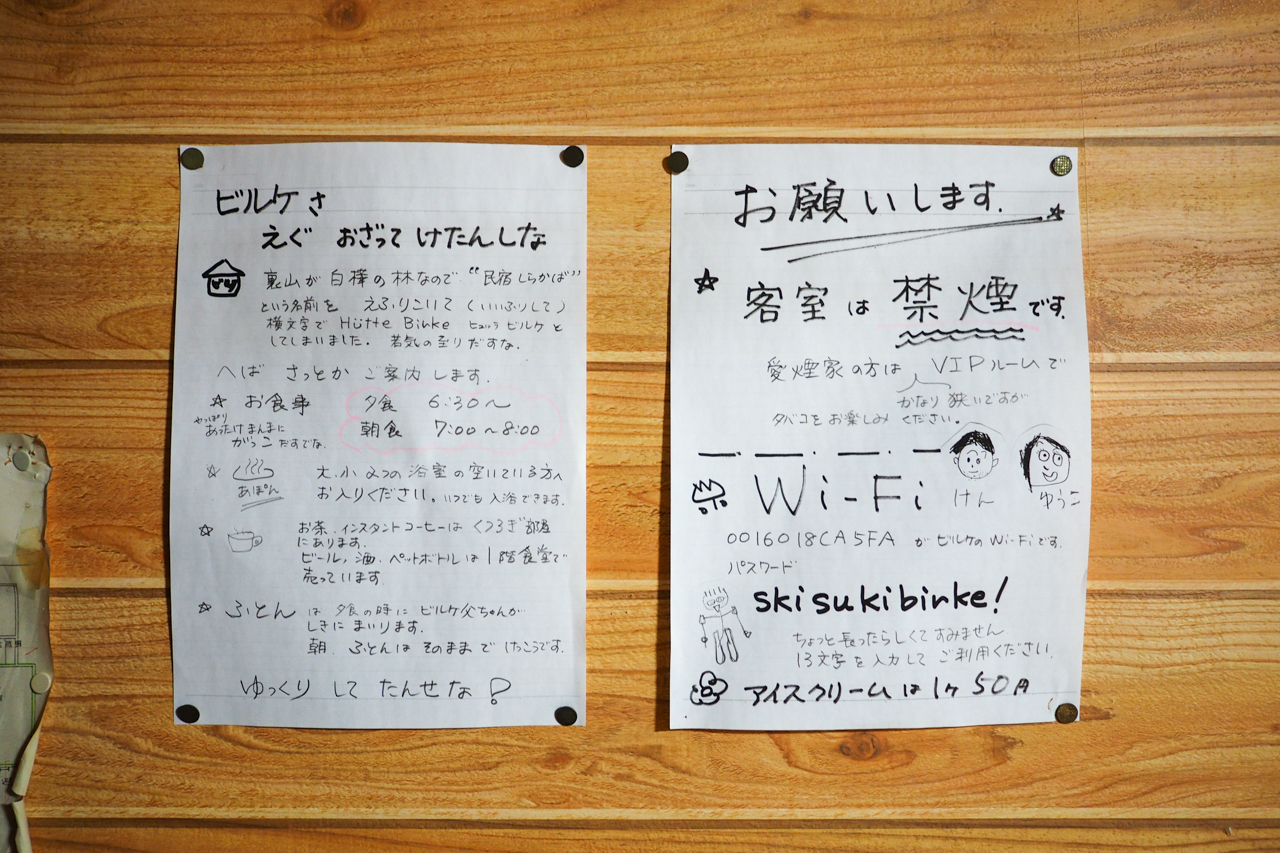 ビルケさ
えぐ おざって けたんしな
裏山が白樺の林なので“民宿しらかば”
という名前を えふりこいて(いいふりして)
横文字で Hütte Birke ヒュッテ ビルケと
してしまいました。若気の至りだすな.
へば さっとか ご案内します.
☆ お食事 夕食 6:30〜
やっぱり
あったけまんまに 朝食 7:00〜8:00
がっこだすでな.
☆ あぽん 大、小 2つの浴室の空いている方へ
お入りください。いつでも入浴できます.
☆ お茶.インスタントコーヒーは くつろぎ部屋
にあります.
ビール、酒.ペットボトルは1階食堂で
売っています.
☆ ふとん は 夕食の時に ビルケ父ちゃんが
しきに まいります.
朝.ふとんは そのままで けっこうです.
ゆっくり して たんせな
お願いします.
☆ 客室は禁煙です.
愛煙家の方は VIPルームで
かなり狭いですが
タバコをお楽しみ ください.
Wi-Fi けん ゆうこ
0016018CA5FA が ビルケの Wi-Fiです.
パスワード
skisukibirke!
ちょっと長ったらしくてすみません
13文字を入力して ご利用ください.
アイスクリームは1ヶ50円